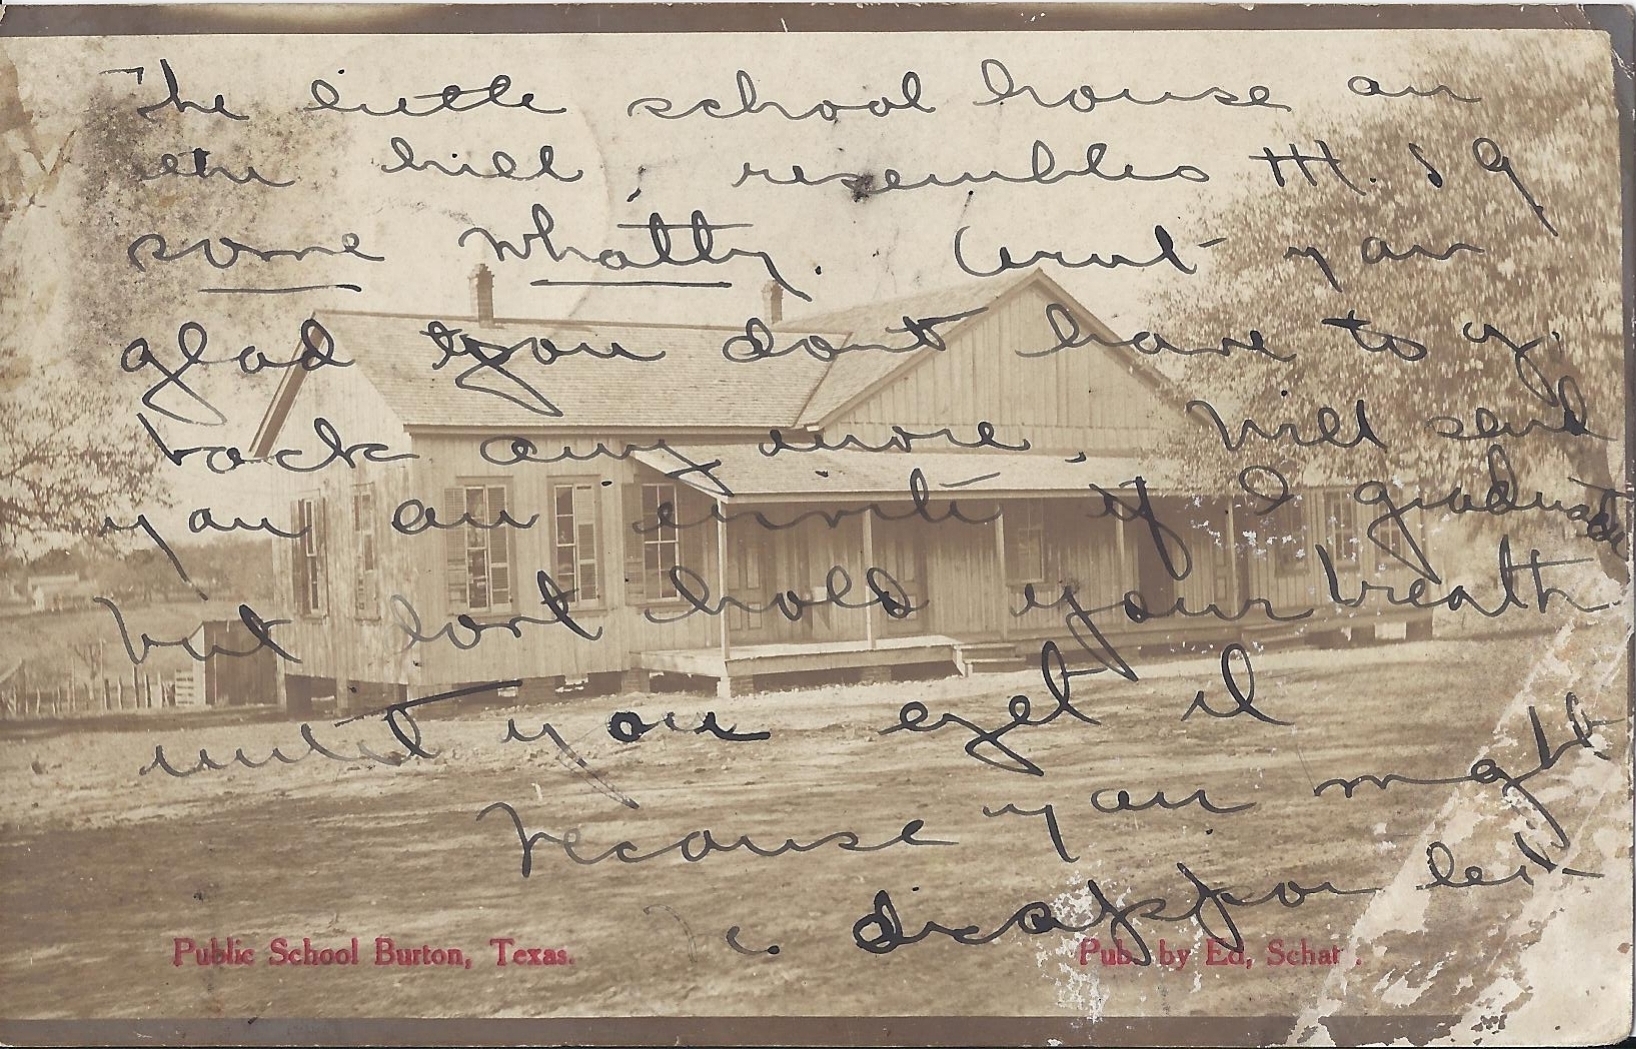 The little school house on
the hill, resembles H. S
some whatty. Arnt you
glad you dont have to go
back any more, Will send
you an invite if I graduate
but dont hold your breath
until you get it
because you might
be disappointed
Public School Burton, Texas.
Pub. by Ed,